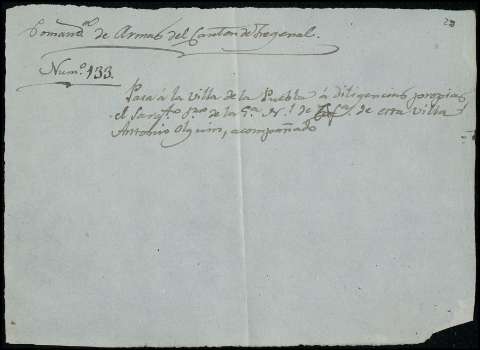 23
Comand.ª de Armas del Canton de Fregenal.
Num.º 133.
Pasa á la villa de la Puebla á diligencias propias
el Sarg.to 1.ro de la G.a N.l de de esta villa
Antonio Olguin, acompañado